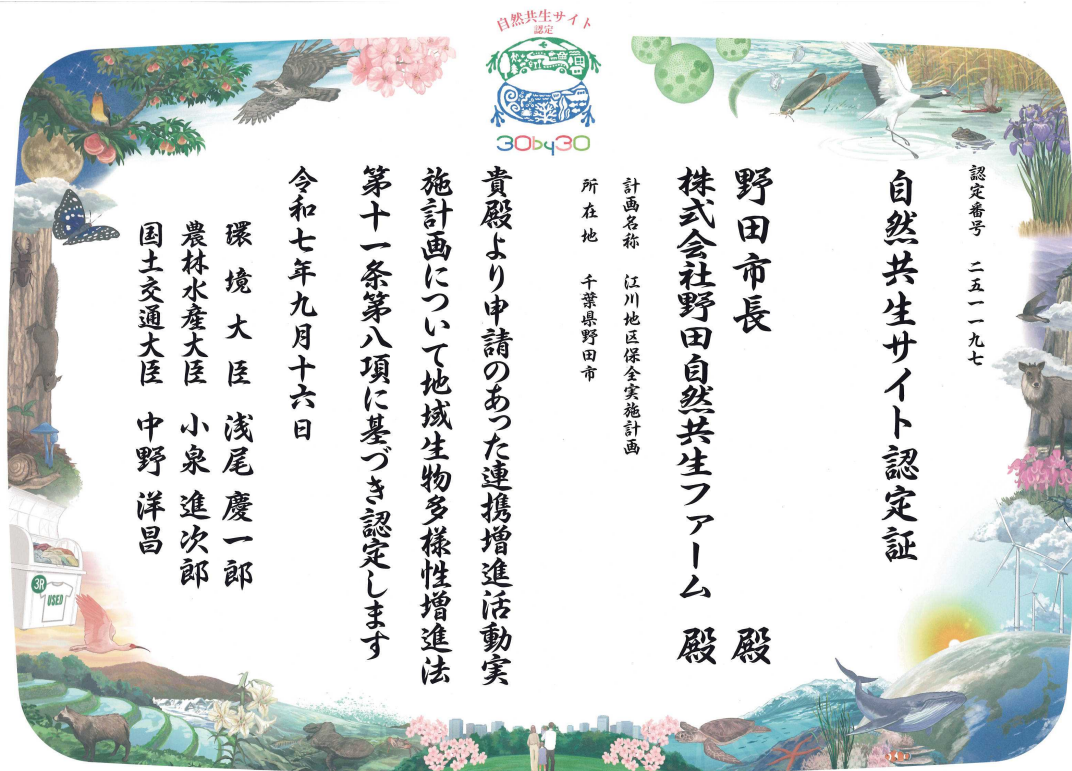 自然共生サイト
認定
30by30
認定番号 二五一一九七
自然共生サイト認定証
野田市長 殿
株式会社野田自然共生ファーム 殿
計画名称 江川地区保全実施計画
所在地 千葉県野田市
貴殿より申請のあった連携増進活動実
施計画について地域生物多様性増進法
第十一条第八項に基づき認定します
令和七年九月十六日
環境大臣 浅尾慶一郎
農林水産大臣 小泉進次郎
国土交通大臣 中野洋昌
3R
USED